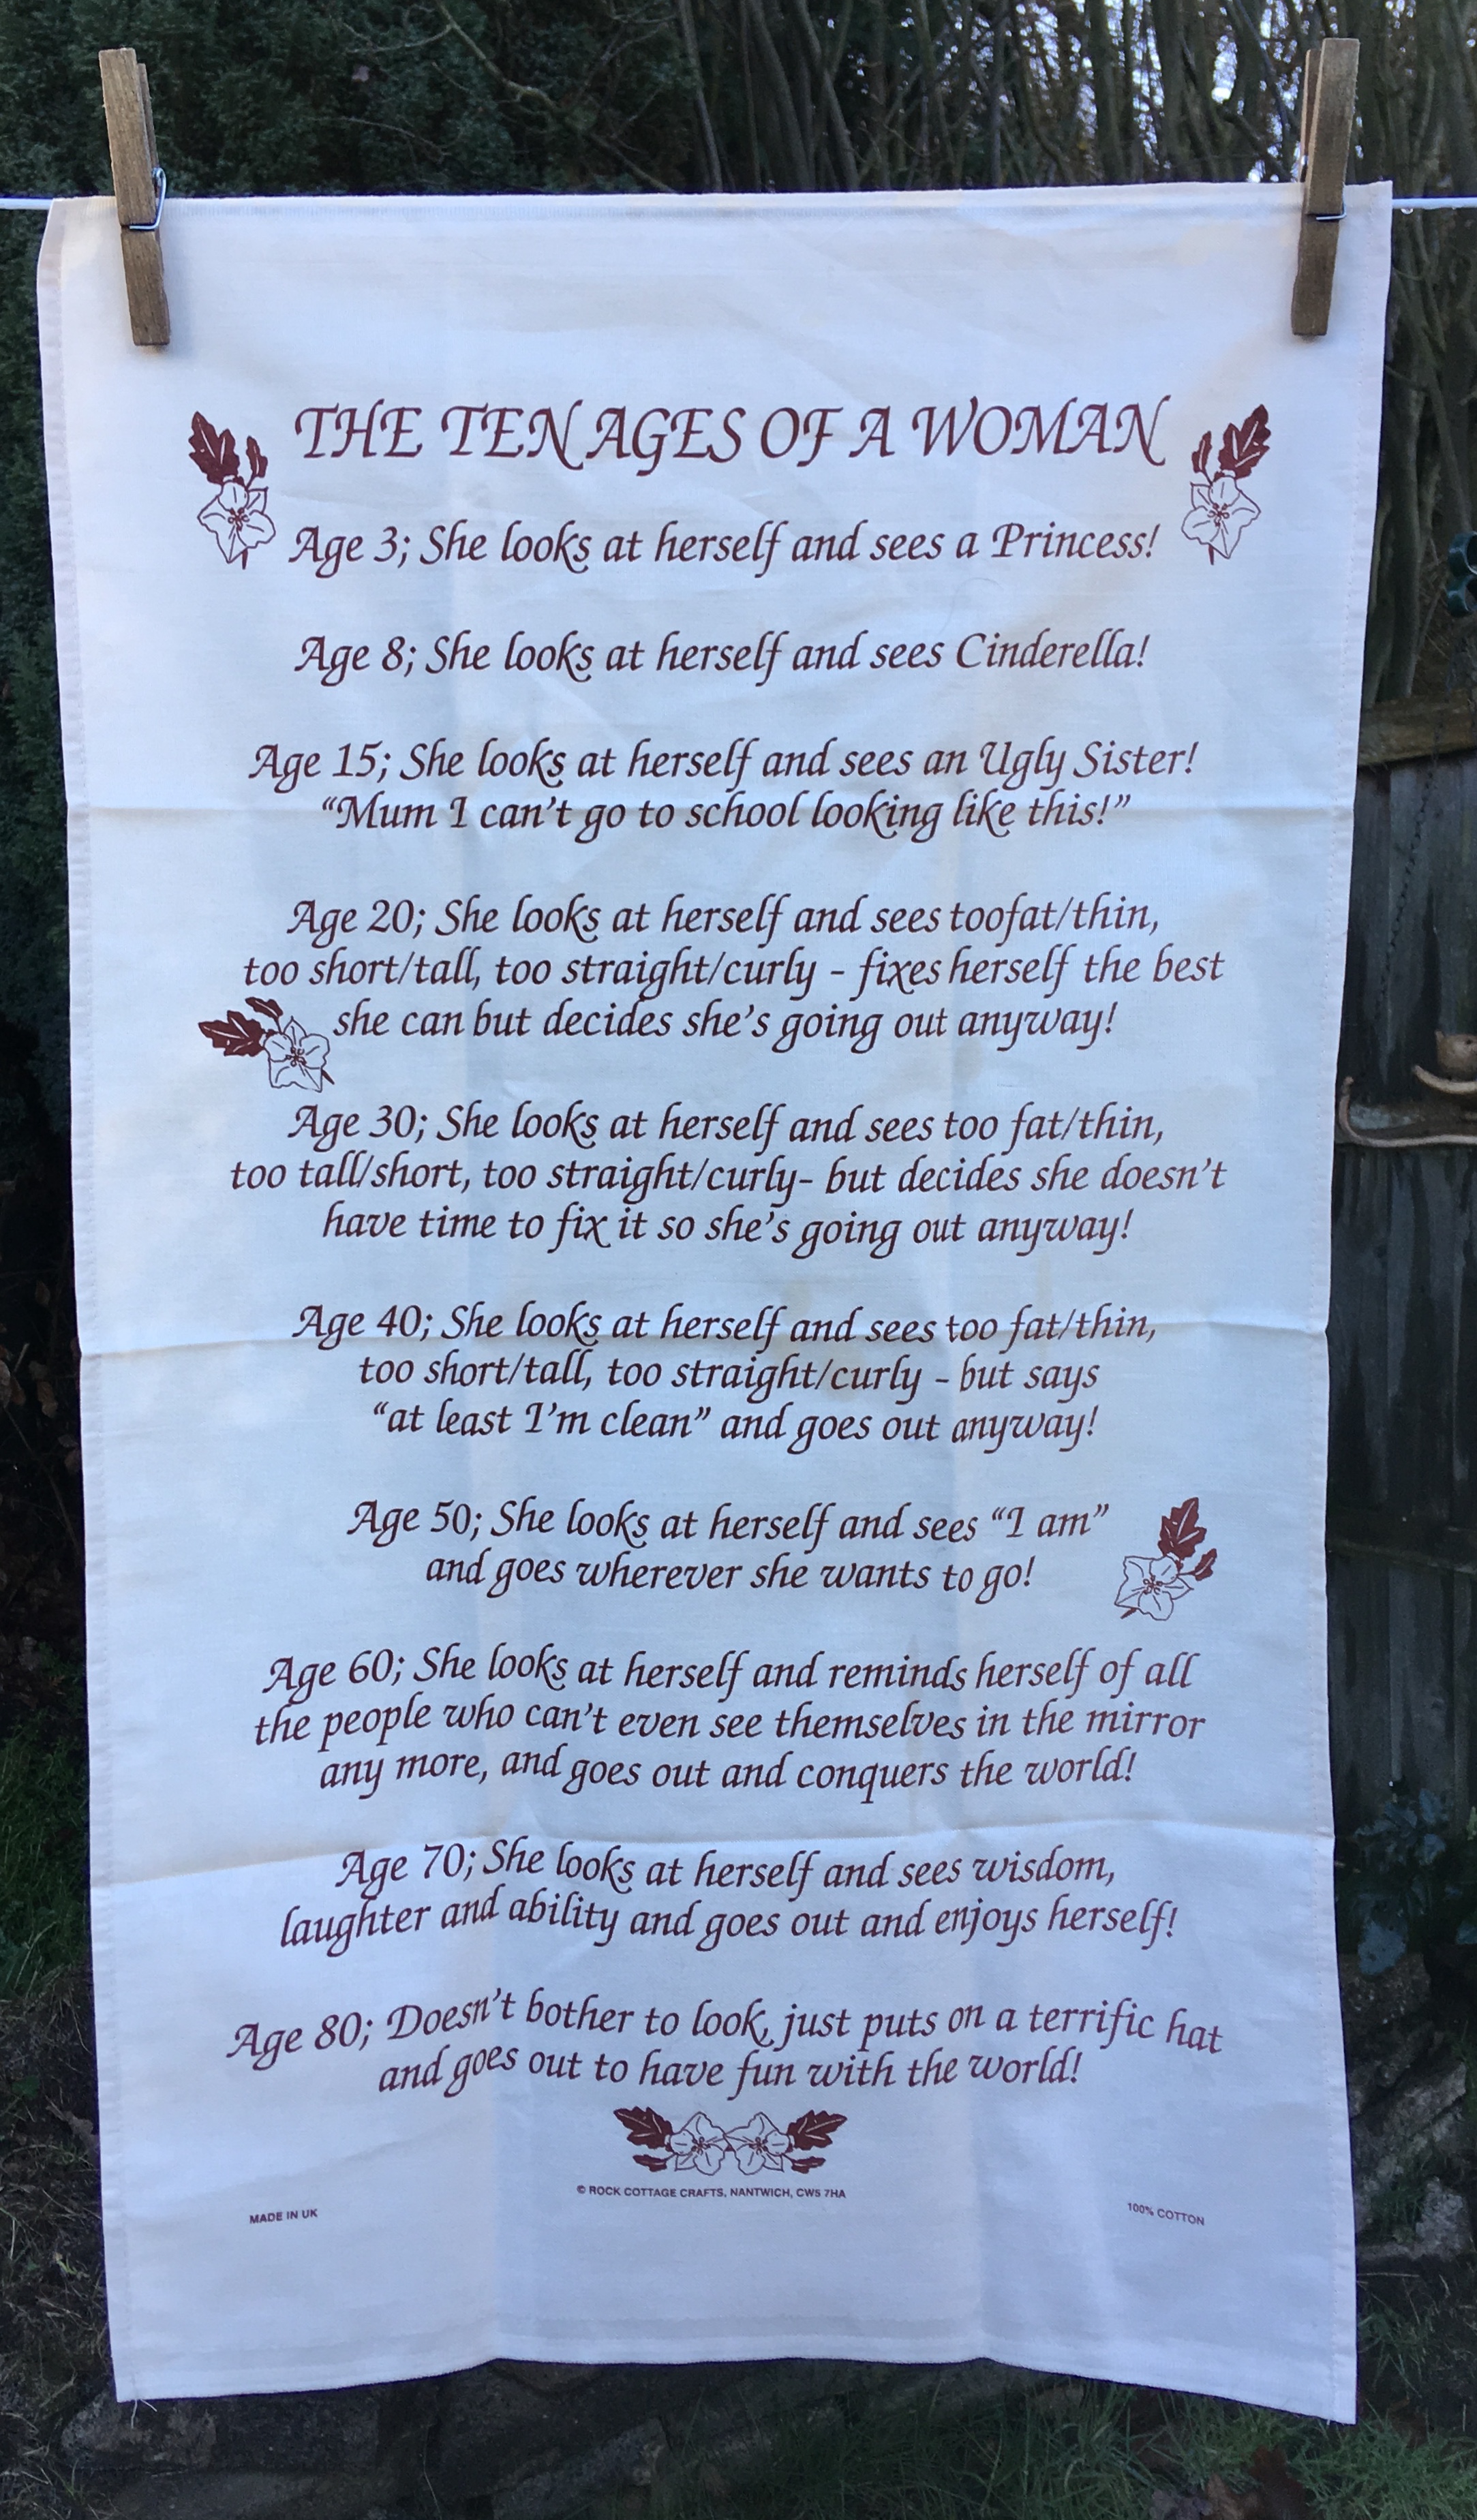 THE TEN AGES OF A WOMAN
Age 3; She looks at herself and sees a Princess!
Age 8; She looks at herself and sees Cinderella!
Age 15; She looks at herself and sees an Ugly Sister!
“Mum I can’t go to school looking like this!”
Age 20; She looks at herself and sees toofat/thin,
too short/tall, too straight/curly - fixes herself the best
she can but decides she’s going out anyway!
Age 30; She looks at herself and sees too fat/thin,
too tall/short, too straight/curly- but decides she doesn’t
have time to fix it so she’s going out anyway!
Age 40; She looks at herself and sees too fat/thin,
too short/tall, too straight/curly - but says
“at least I’m clean” and goes out anyway!
Age 50; She looks at herself and sees “I am”
and goes wherever she wants to go!
Age 60; She looks at herself and reminds herself of all
the people who can’t even see themselves in the mirror
any more, and goes out and conquers the world!
Age 70; She looks at herself and sees wisdom,
laughter and ability and goes out and enjoys herself!
Age 80; Doesn’t bother to look, just puts on a terrific hat
and goes out to have fun with the world!
© ROCK COTTAGE CRAFTS, NANTWICH, CW5 7HA
MADE IN UK
100% COTTON